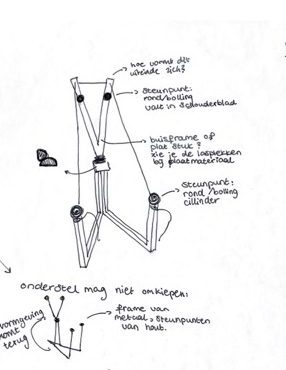 hoe vormt dit
uiteinde zich?
steunpunt:
rond/bolling
valt in schouderblad
buisframe of
plat stuk?
zie je de lasplekken
bij plaatmateriaal
steunpunt:
rond/bolling
cillinder
onderstel mag niet omkiepen:
vormgeving
komt
terug
frame van
metaal, steunpunten
van hout.